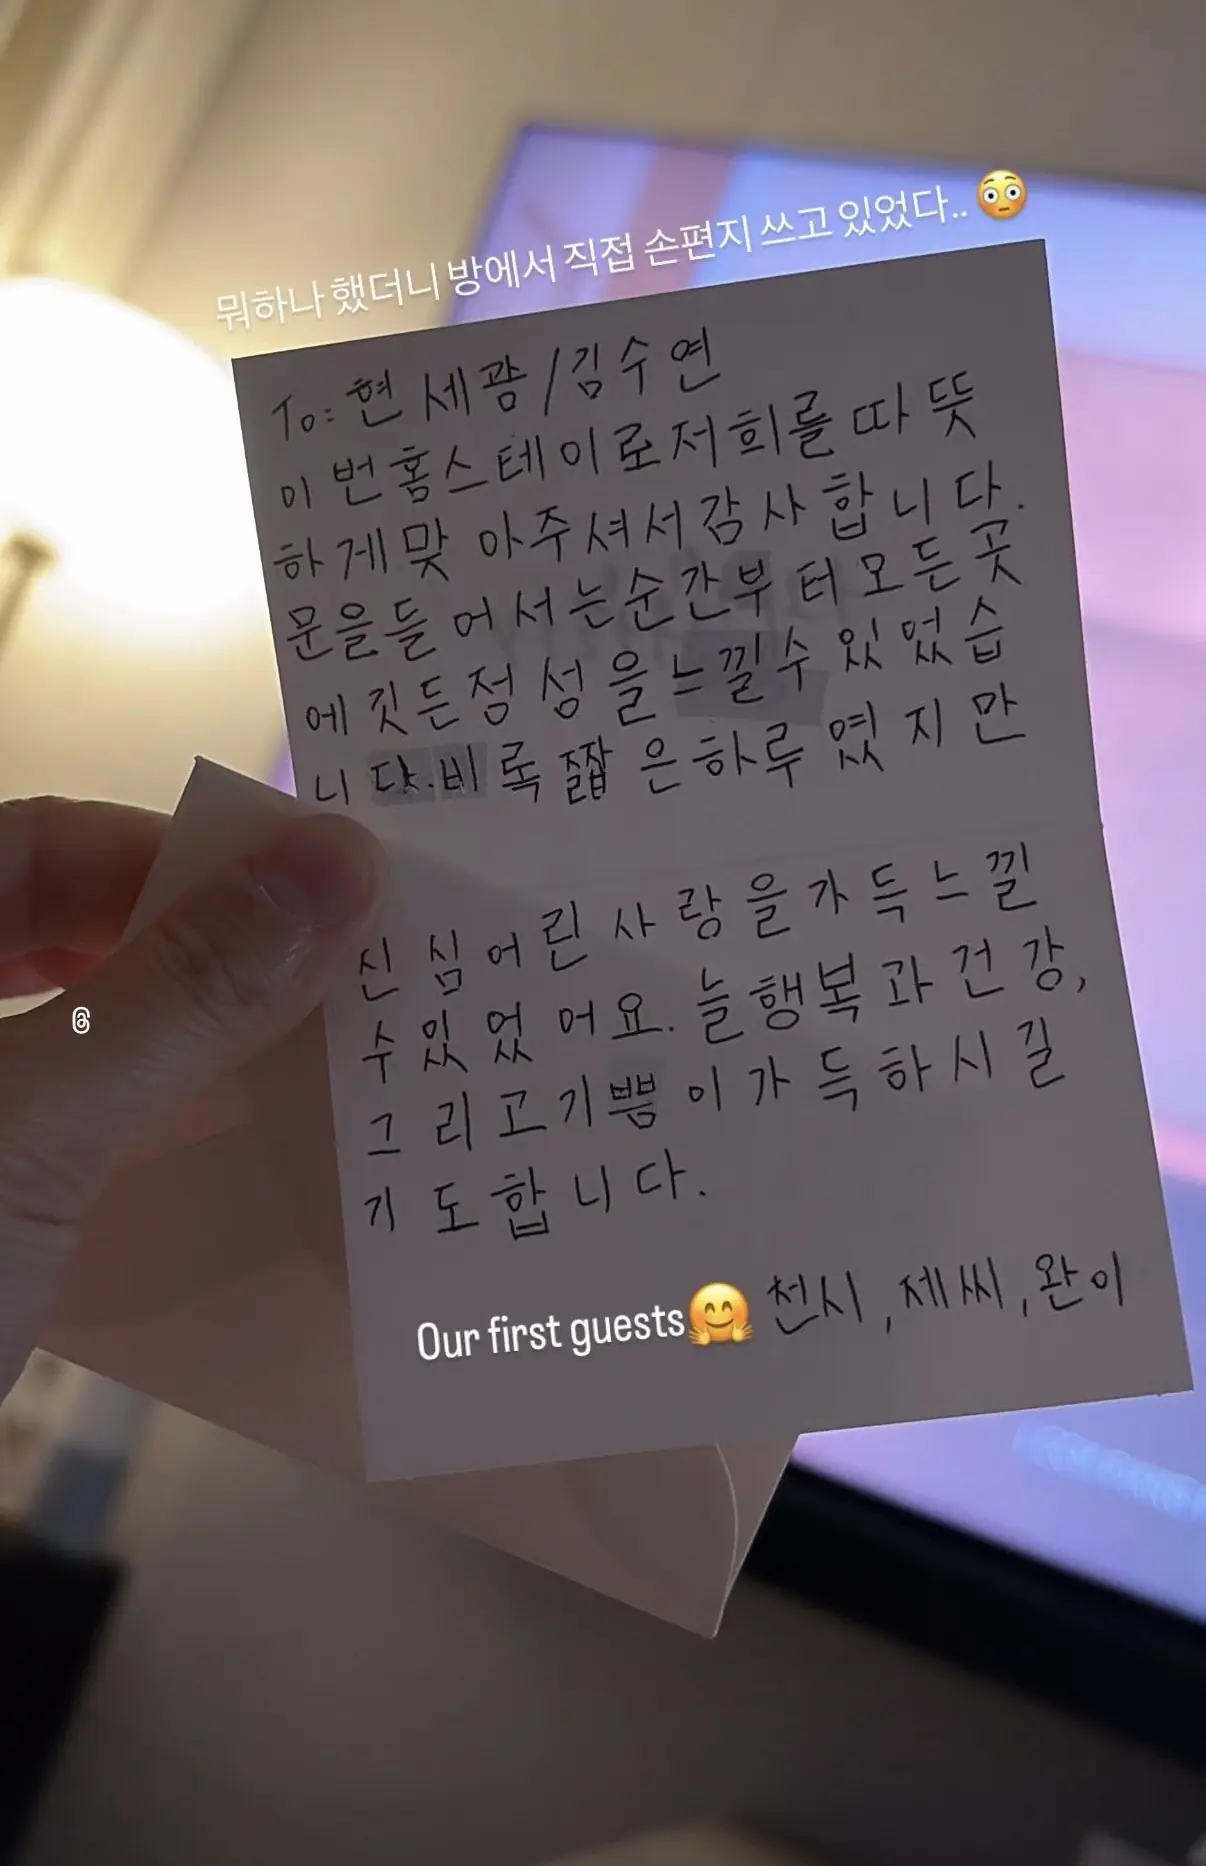 뭐하나 했더니 방에서 직접 손편지 쓰고 있었다.. 😳
To: 현세광/김수연
이번홈스테이로저희를 따뜻
하게맞아주셔서감사합니다.
문을들어서는순간부터모든곳
에깃든정성을느낄수있었습
니다.비록짧은하루였지만
진심어린사랑을가득느낄
수있었어요. 늘행복과건강,
그리고기쁨이가득하시길
기도합니다.
Our first guests🤗 천시, 제씨, 완이